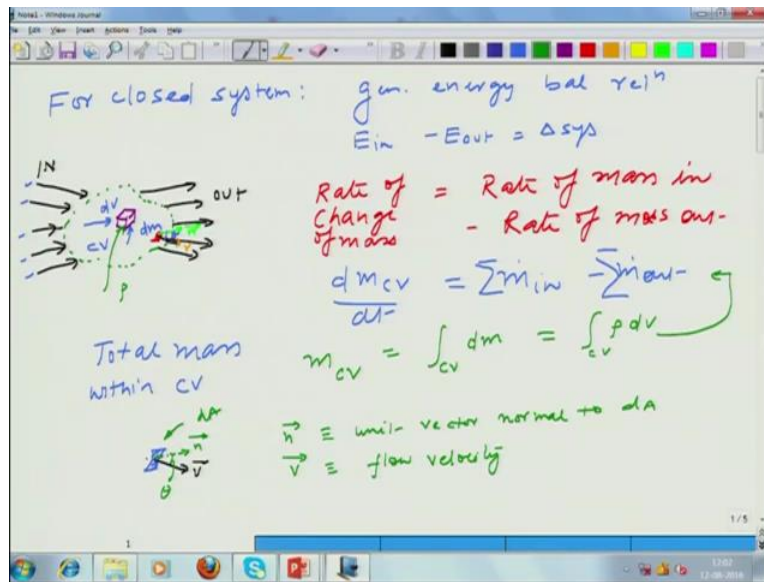 Note1 - Windows Journal
File Edit View Insert Actions Tools Help
B I
For closed system: gen. energy bal relⁿ
E_in - E_out = Δsys
IN
OUT
dV
dm
CV
n
v
ρ
Rate of Change of mass = Rate of mass in - Rate of mass out
dm_cv/dt = Σṁ_in - Σṁ_out
Total mass within CV
m_cv = ∫_cv dm = ∫_cv ρ dV
dA
n⃗
V⃗
θ
n⃗ ≡ unit vector normal to dA
V⃗ ≡ flow velocity
1/5
1
12:02
12-08-2016